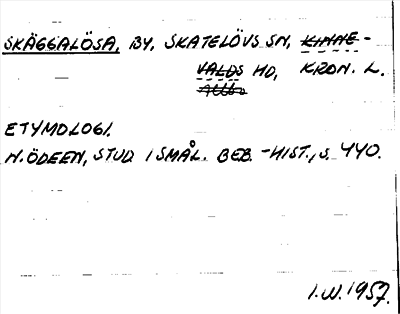 SKÄGGALÖSA, BY, SKATELÖVS SN, KINNE-
VALDS HD, KRON. L.
ALLBO
ETYMOLOGI.
N. ÖDEEN, STUD. I SMÅL. BEB.-HIST., S. 440.
I.W. 1957.